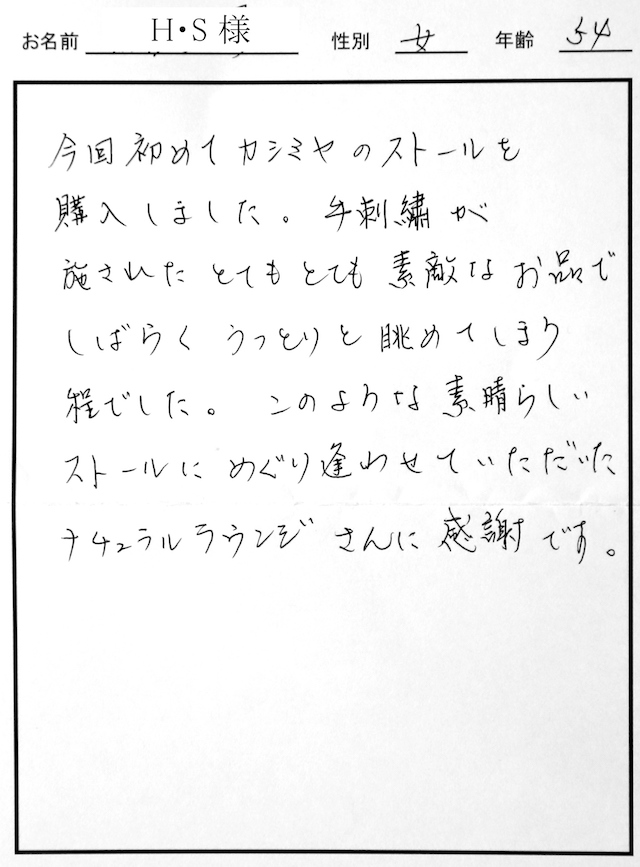 お名前 H・S様 性別 女 年齢 54
今回初めてカシミヤのストールを
購入しました。手刺繍が
施されたとてもとても素敵なお品で
しばらくうっとりと眺めてしまう
程でした。このような素晴らしい
ストールにめぐり逢わせていただいた
ナチュラルラウンジさんに感謝です。